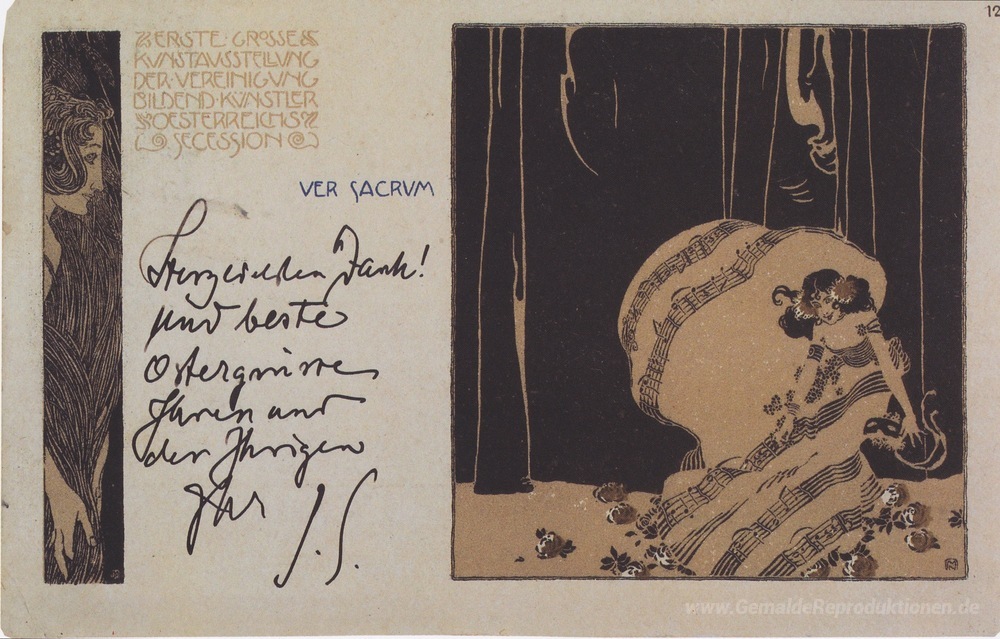 12
ERSTE · GROSSE
KUNSTAUSSTELLUNG
DER · VEREINIGUNG
BILDEND · KÜNSTLER
OESTERREICHS
SECESSION
VER SACRVM
Herzlichen Dank!
und beste
Ostergrüsse
Ihnen und
den Ihrigen
Ihr J. S.
www.GemaldeReproduktionen.de